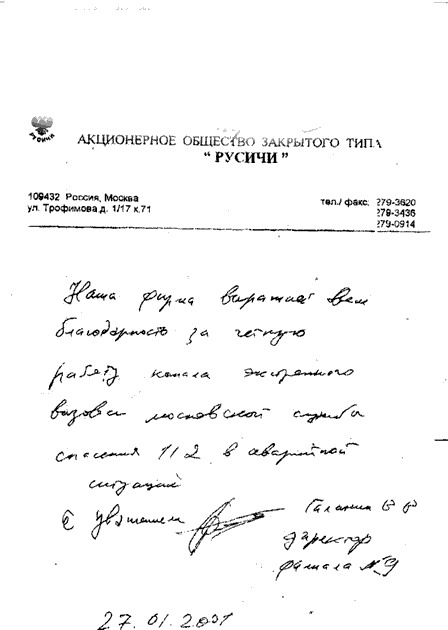 РУСИЧИ
АКЦИОНЕРНОЕ ОБЩЕСТВО ЗАКРЫТОГО ТИПА
“ РУСИЧИ ”
109432 Россия, Москва
ул. Трофимова д. 1/17 к.71
тел./ факс: 279-3620
279-3436
279-0914
Наша фирма выражает Вам
благодарность за четкую
работу канала экстренного
вызова московской службы
спасения 112 в аварийной
ситуации
С уважением
директор
филиала №9
27.01.2001